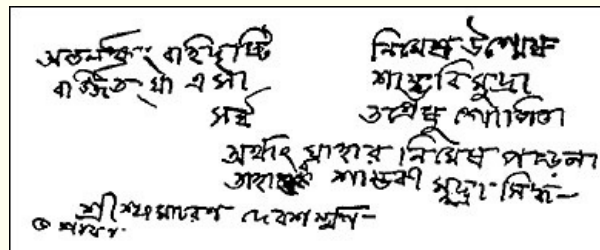 অন্তর্লক্ষ্য: বহির্দৃষ্টি নিমেষ উন্মেষ
বর্জিত: যা এসা শাম্ভবি মুদ্রা
সর্ব্ব গোপিতা
অর্থাৎ যাহার নিমেষ পড়েনা
তাহারই শাম্ভবী মুদ্রা সিদ্ধ—
শ্রীশ্যামাচরণ দেবশর্ম্মণ—